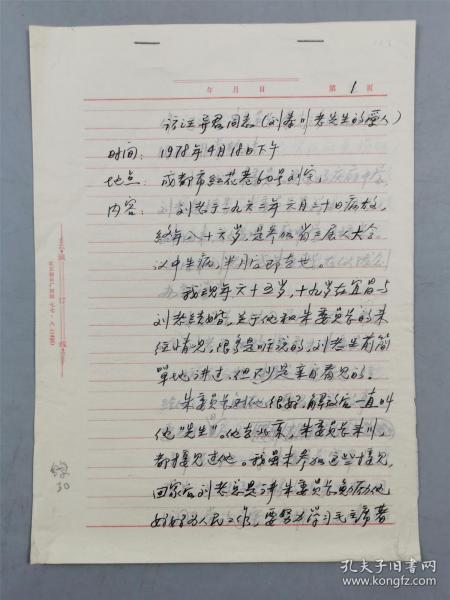 年 月 日 第 1 页
访汪导君同志(刘寿川老先生的爱人)
时间: 1978年4月18日下午
地点: 成都市红花巷60号刘宅,
内容: 刘老于一九六三年六月三十日病故,
终年八十六岁,是参加省三届人大会
议中生病,半月后即去世。
我现年六十五岁,十九岁在宜昌与
刘老结婚,关于他和朱委员长的来
往情况,很多是听说的,刘老生前简
单地讲过,但不少是亲自看见的。
朱委员长对他很好,解放后一直叫
他"先生"。他去北京,朱委员长来川,
都接见过他。我虽未参加这些接见,
回家后刘老总是讲朱委员长勉励他
好好为人民工作,要努力学习毛主席著
装 订 线
30
孔夫子旧书网
www.kongfz.com